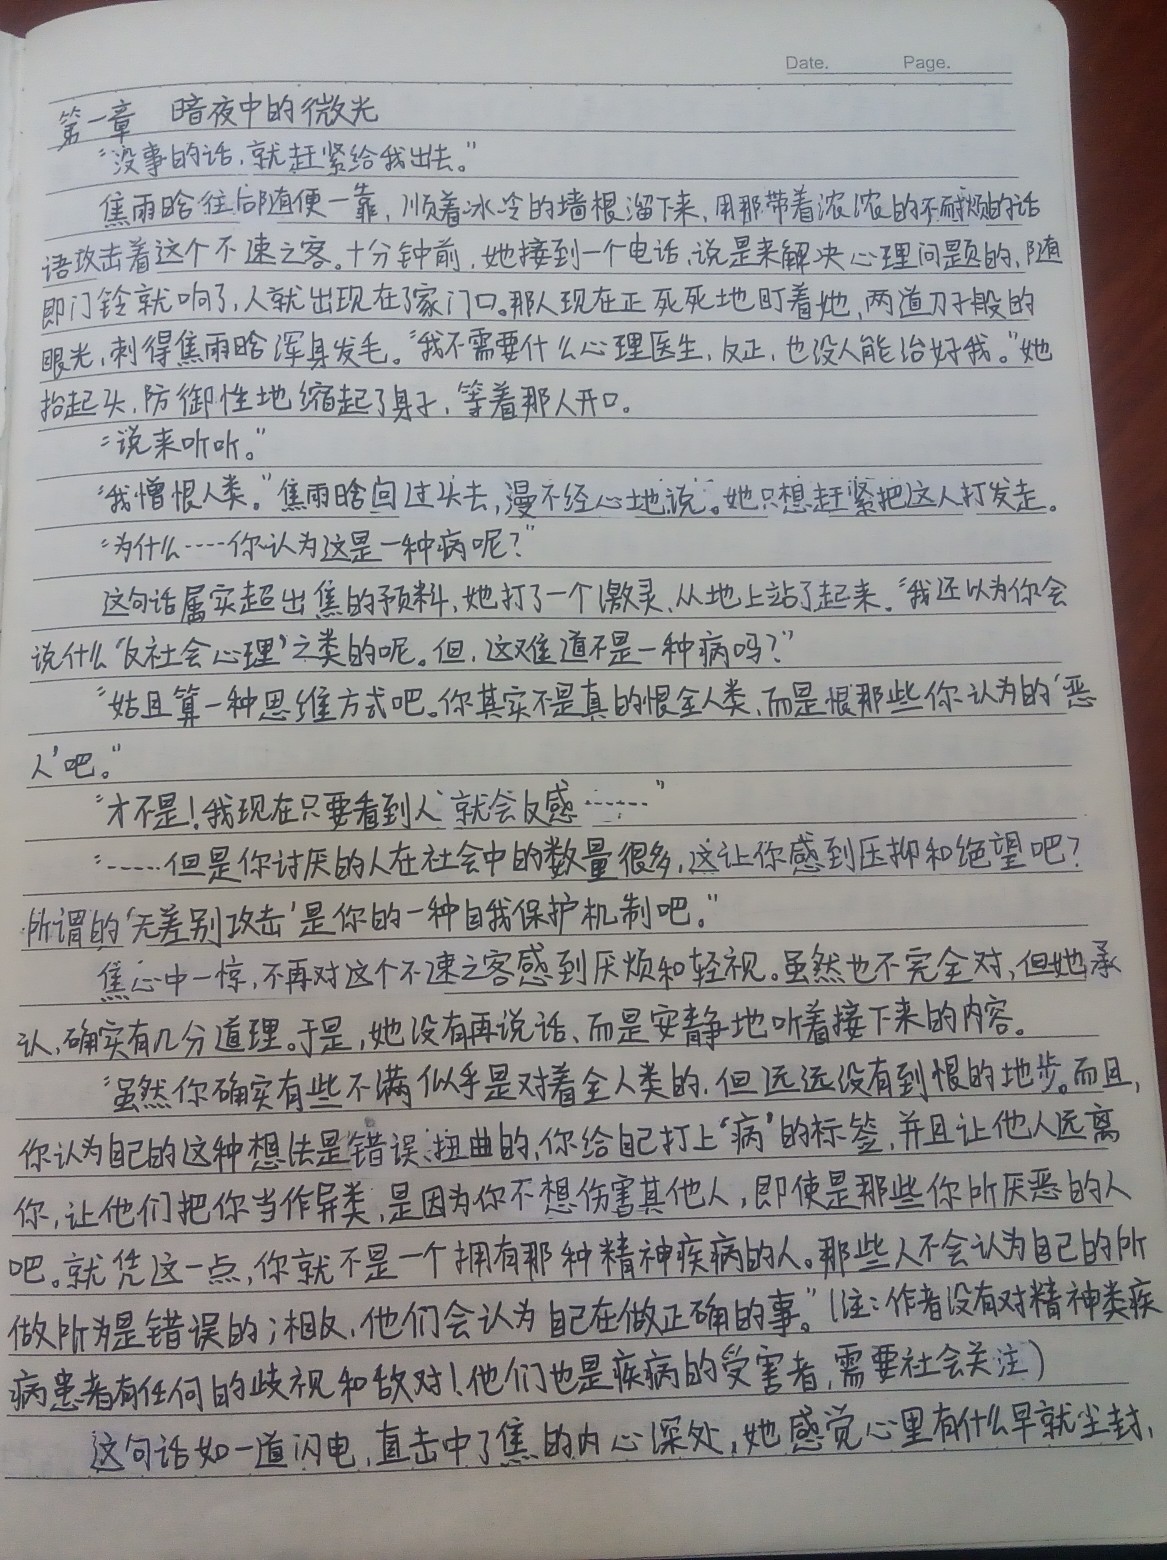 Date. Page.
第一章 暗夜中的微光
“没事的话,就赶紧给我出去。”
焦雨晗往后随便一靠,顺着冰冷的墙根溜下来,用那带着浓浓的不耐烦的话
语攻击着这个不速之客。十分钟前,她接到一个电话,说是来解决心理问题的,随
即门铃就响了,人就出现在了家门口。那人现在正死死地盯着她,两道刀子般的
眼光,刺得焦雨晗浑身发毛。“我不需要什么心理医生,反正,也没人能治好我。”她
抬起头,防御性地缩起了身子,等着那人开口。
“说来听听。”
“我憎恨人类。”焦雨晗回过头去,漫不经心地说。她只想赶紧把这人打发走。
“为什么……你认为这是一种病呢?”
这句话属实超出焦的预料,她打了一个激灵,从地上站了起来。“我还以为你会
说什么‘反社会心理’之类的呢。但,这难道不是一种病吗?”
“姑且算一种思维方式吧。你其实不是真的恨全人类,而是恨那些你认为的‘恶
人’吧。”
“才不是!我现在只要看到人就会反感……”
“……但是你讨厌的人在社会中的数量很多,这让你感到压抑和绝望吧?
所谓的‘无差别攻击’是你的一种自我保护机制吧。”
焦心中一惊,不再对这个不速之客感到厌烦和轻视。虽然也不完全对,但她承
认,确实有几分道理。于是,她没有再说话、而是安静地听着接下来的内容。
“虽然你确实有些不满似乎是对着全人类的,但远远没有到恨的地步。而且,
你认为自己的这种想法是错误、扭曲的,你给自己打上‘病’的标签,并且让他人远离
你,让他们把你当作异类,是因为你不想伤害其他人,即使是那些你所厌恶的人
吧。就凭这一点,你就不是一个拥有那种精神疾病的人。那些人不会认为自己的所
做所为是错误的;相反,他们会认为自己在做正确的事。”(注:作者没有对精神类疾
病患者有任何的歧视和敌对!他们也是疾病的受害者,需要社会关注)
这句话如一道闪电,直击中了焦的内心深处,她感觉心里有什么早就尘封、